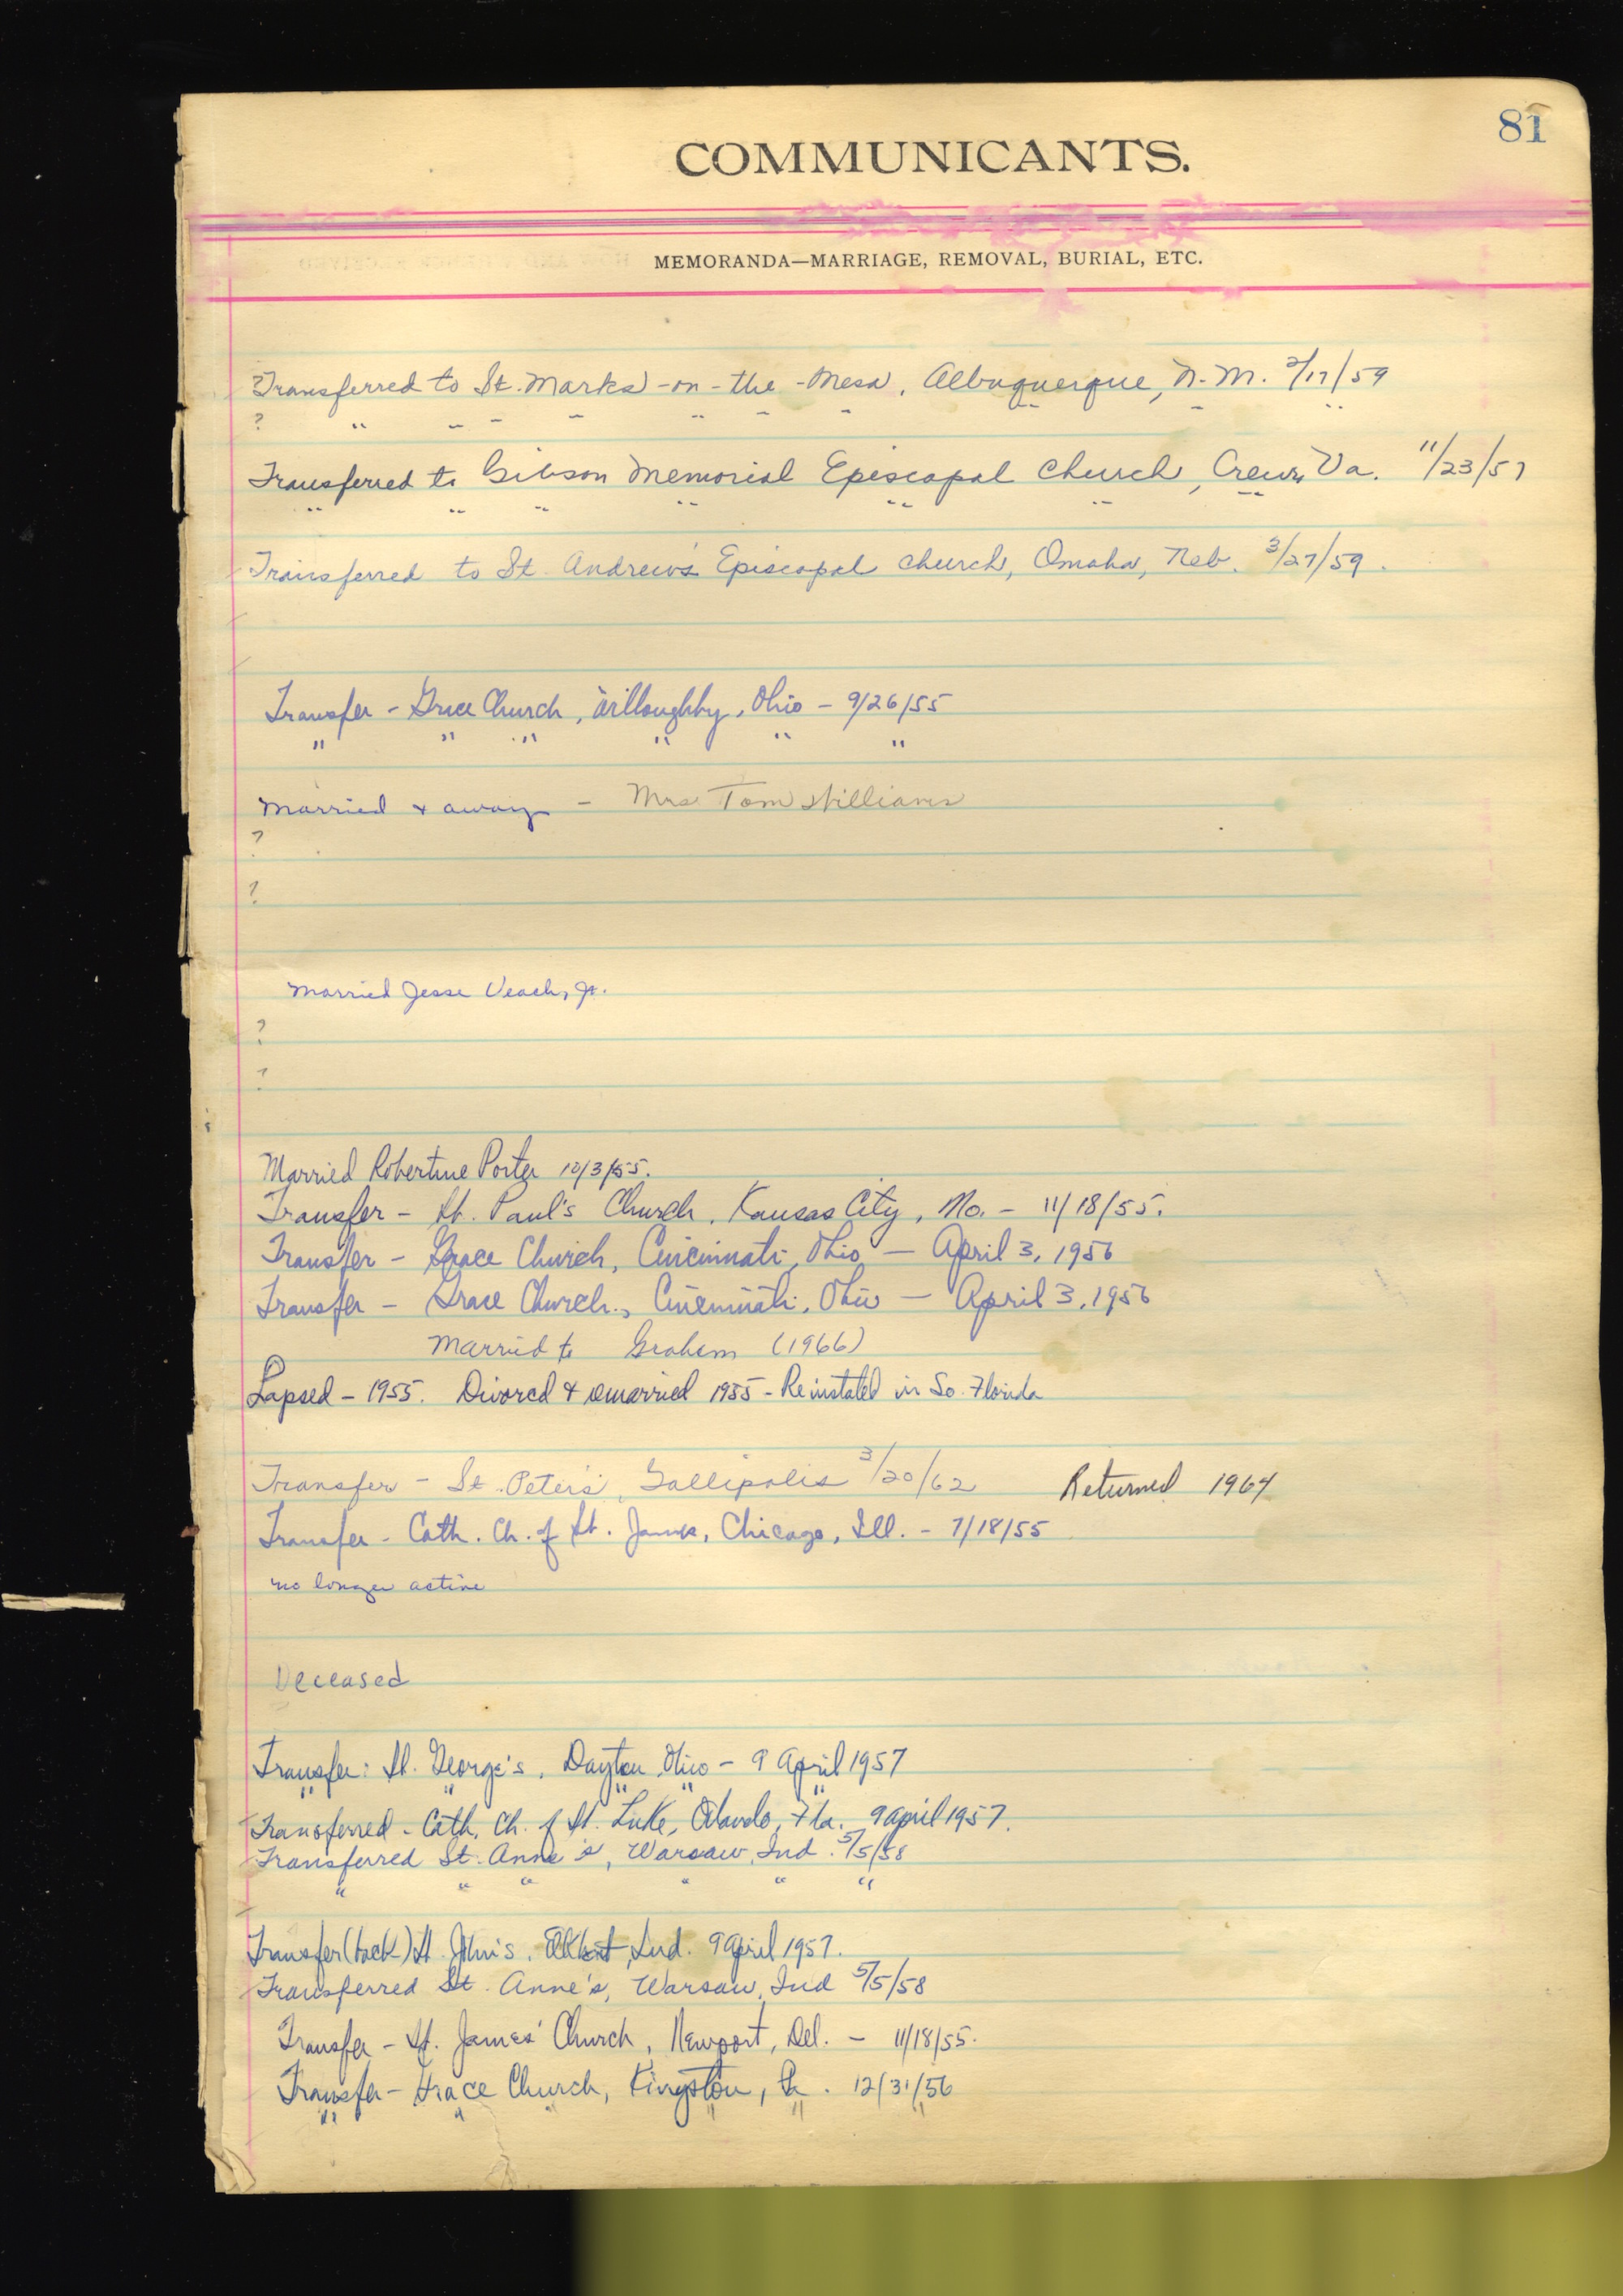 81
COMMUNICANTS.
MEMORANDA—MARRIAGE, REMOVAL, BURIAL, ETC.
?Transferred to St. Marks-on-the-Mesa, Albuquerque, N.M. /17/59
? " " " " " " " " " "
Transferred to Gibson Memorial Episcopal Church, Crewe, Va. 11/23/57
" " " " " " "
Transferred to St. Andrew's Episcopal Church, Omaha, Neb. 3/27/59.
Transfer - Grace Church, Willoughby, Ohio - 9/26/55
" " " " " "
Married & away - Mrs Tom Williams
?
?
Married Jesse Veach, Jr.
?
?
Married Robertine Porter 10/3/55.
Transfer - St. Paul's Church, Kansas City, Mo. - 11/18/55.
Transfer - Grace Church, Cincinnati, Ohio - April 3, 1956
Transfer - Grace Church, Cincinnati, Ohio - April 3, 1956
Married to Graham (1966)
Lapsed - 1955. Divorced & remarried 1955 - Reinstated in So. Florida
Transfer - St. Peter's, Gallipolis 3/20/62 Returned 1964
Transfer - Cath. Ch. of St. James, Chicago, Ill. - 7/18/55
no longer active
Deceased
Transfer: St. George's, Dayton, Ohio - 9 April 1957
" " " " "
Transferred - Cath. Ch. of St. Luke, Orlando, Fla. 9 April 1957.
Transferred St. Anne's, Warsaw, Ind. 5/5/58
" " " " " "
Transfer (back) St. John's, Elkhart, Ind. 9 April 1957.
Transferred St. Anne's, Warsaw, Ind 5/5/58
Transfer - St. James' Church, Newport, Del. - 11/18/55.
Transfer - Grace Church, Kingston, Pa. 12/31/56
" " " " " "